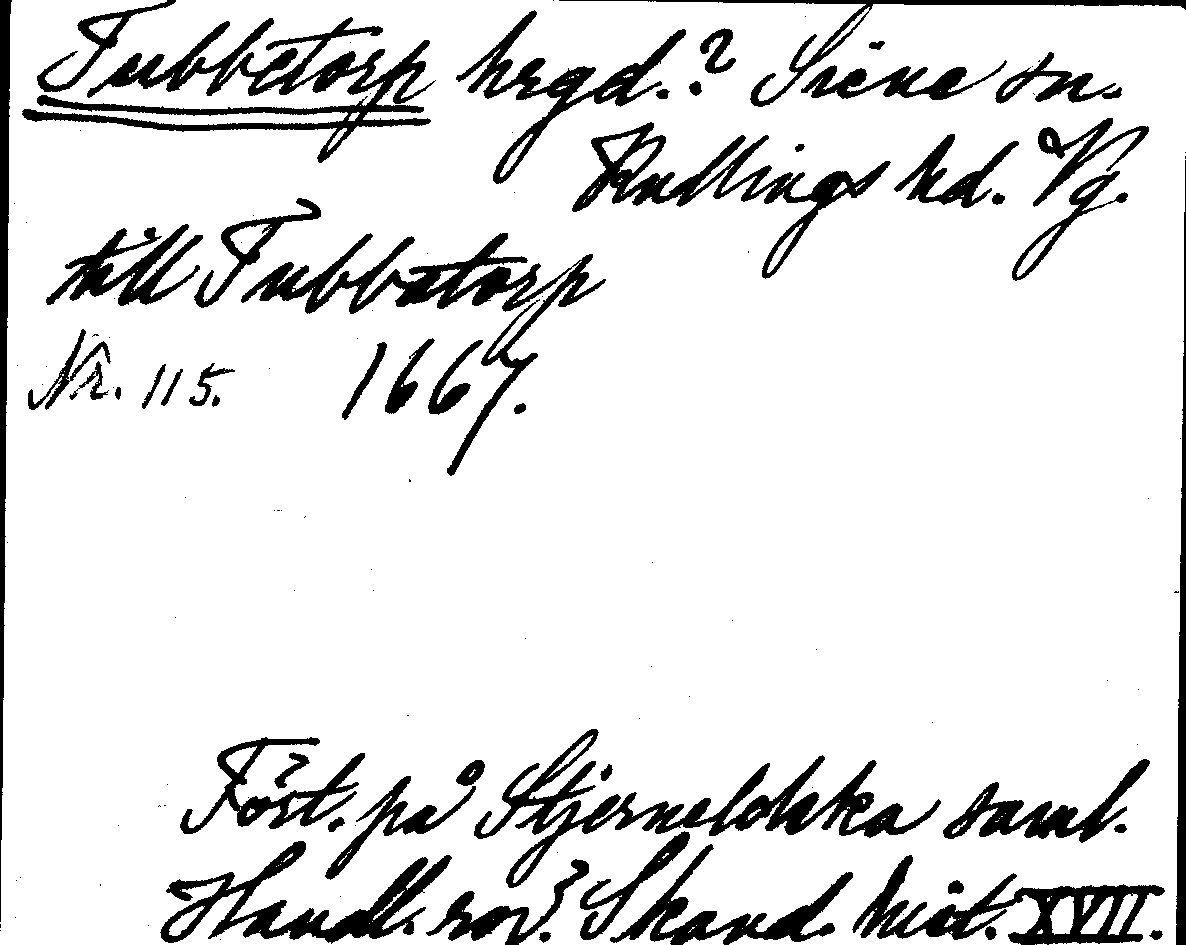 Tubbetorp hrgd.? Siene sn.
Kullings hd. Vg.
till Tubbatorp
Nr. 115. 1667.
Fört. på Stjerneldska saml.
Handl. rör. Skand. hist. XVII.